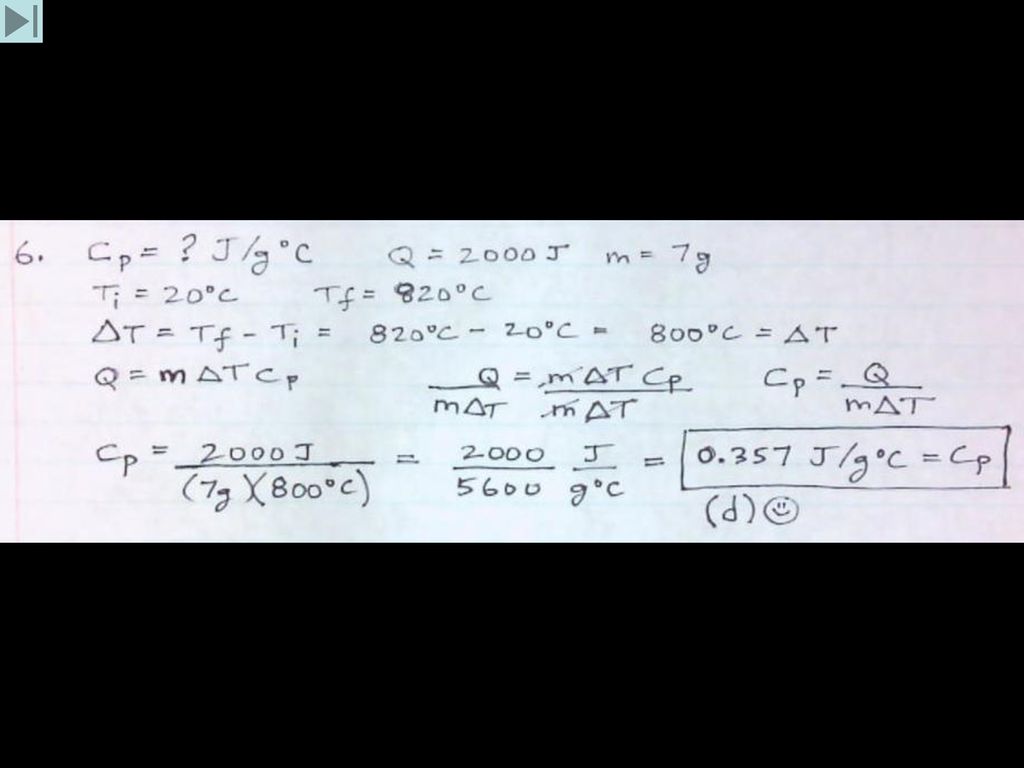 6. Cp = ? J/g°C Q = 2000 J m = 7g
Ti = 20°C Tf = 820°C
ΔT = Tf - Ti = 820°C - 20°C = 800°C = ΔT
Q = m ΔT Cp Q/mΔT = m ΔT Cp/m ΔT Cp = Q/mΔT
Cp = 2000 J/(7g)(800°C) = 2000/5600 J/g°C = 0.357 J/g°C = Cp
(d) ☺